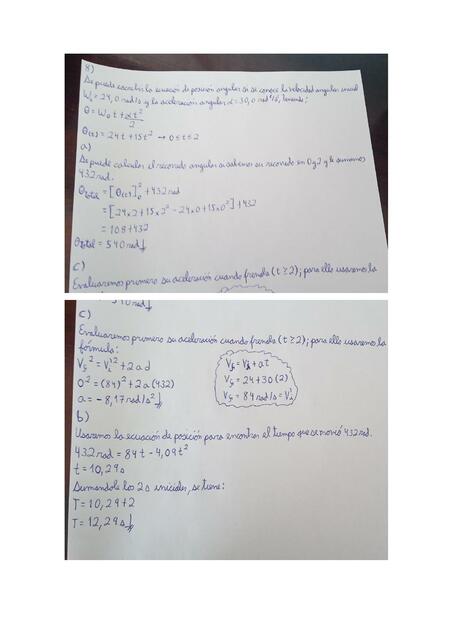 8)
Se puede escribir la ecuación de posición angular si se conoce la velocidad angular inicial
W₀ = 24,0 rad/s y la aceleración angular α = 30,0 rad/s², tenemos:
θ = W₀t + αt²/2
θ(t) = 24t + 15t² → 0 ≤ t ≤ 2
a)
Se puede calcular el recorrido angular si sabemos su recorrido en 0 y 2 y le sumamos
432 rad.
θtotal = [θ(t)]₀² + 432 rad
= [24×2 + 15×2² - 24×0 + 15×0²] + 432
= 108 + 432
θtotal = 540 rad
c)
Evaluaremos primero su aceleración cuando frena (t ≥ 2); para ello usaremos la
540 rad
c)
Evaluaremos primero su aceleración cuando frena (t ≥ 2); para ello usaremos la
fórmula:
Vf² = Vi² + 2ad
0² = (84)² + 2a(432)
a = -8,17 rad/s²
Vf = Vi + at
Vf = 24 + 30(2)
Vf = 84 rad/s = Vi
b)
Usaremos la ecuación de posición para encontrar el tiempo que se movió 432 rad.
432 rad = 84t - 4,09t²
t = 10,29s
Sumandole los 2s iniciales, se tiene:
T = 10,29 + 2
T = 12,29s